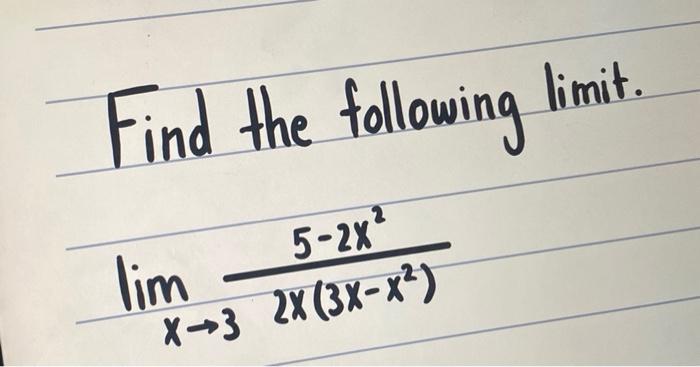 Find the following limit.
lim x→3 5-2x² / 2x(3x-x²)